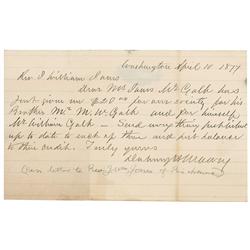 Washington April 10. 1877
Rev. J William Jones
Dear Mr Jones Mr Galt has
just given me $20 for our society for his
Brother Mr. M. W. Galt and for himself
Mr William Galt – Send every thing published
up to date to each of them and put balance
to their credit. Truly yours
Dabney H Maury
(an letter to Rev. J Wm Jones of Richmond)